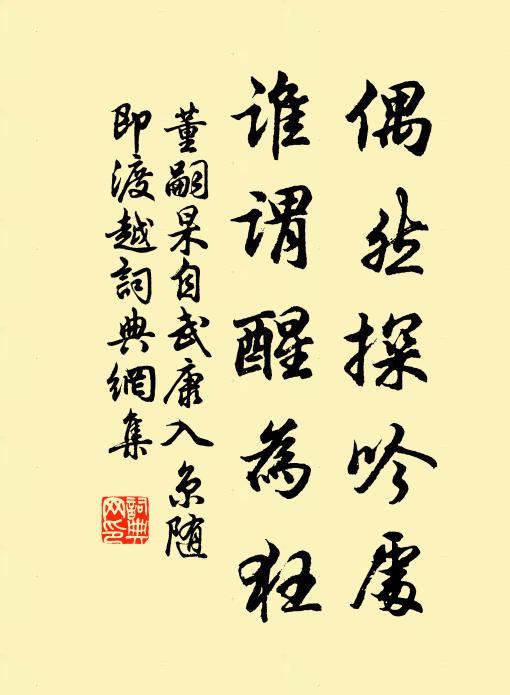 偶然探吟處
誰謂醒為狂
董嗣杲自武康入京随
即渡越詞典網集
詞典
网印